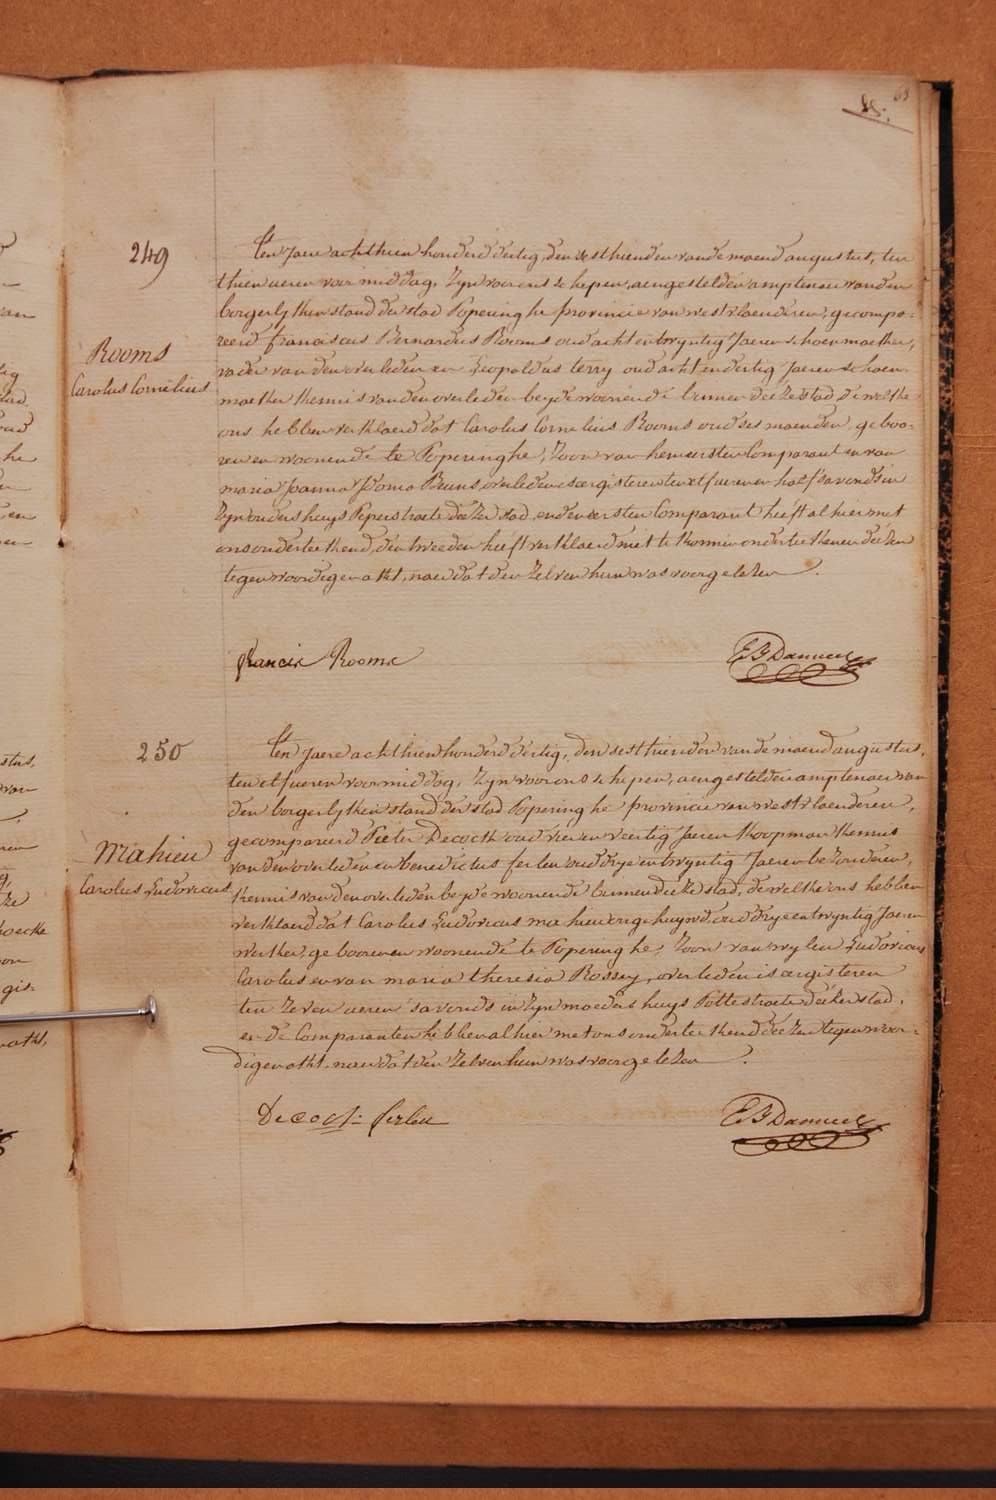 68
85.
249
Rooms
Carolus Cornelius
Ten Jaere achthien honderd dertig, den sesthienden van de maend augustus, ten
thien ueren voor middag, Zyn voor ons schepen, aengestelden amptenaer van den
borgerlyken stand der stad Poperinghe provincie van westvlaenderen, gecompa-
reerd franciscus Bernardus Rooms oud acht en twyntig Jaeren schoenmaeker,
vader van den overleden en Leopoldus terry oud acht en dertig Jaeren schoen
maeker kennis van den overleden beyde woonende binnen deeze stad de welke
ons hebben verklaerd dat Carolus Cornelius Rooms oud ses maenden, geboo-
ren en woonende te Poperinghe, Zoon van hem eersten Comparant en van
maria Joanna Beuns, overleden is ergisteren ten elf ueren en half savonds in
Zyn ouders huys Peperstraete deezer stad, en den eersten Comparant heeft alhier met
ons onderteekend, den tweeden heeft verklaerd niet te konnen onderteekenen deezen
tegenwoordigen akt, naer dat den Zelven hun was voorgelezen.
francis Rooms
250
Mahieu
Carolus Ludovicus
Ten Jaere achthien honderd dertig, den sesthienden van de maend augustus,
ten elf ueren voormiddag, Zyn voor ons schepen, aengestelden amptenaer van
den borgerlyken stand der stad Poperinghe provincie van westvlaenderen,
gecompareerd Pieter Decock oud vier en veertig Jaeren koopman kennis
van den overleden en benedictus ferlen oud drye en twyntig Jaeren bezonderen,
kennis van den overleden beyde woonende binnen deeze stad, de welke ons hebben
verklaerd dat Carolus Ludovicus mahieu ongehuywd, oud drye en twyntig Jaeren
werker, gebooren en woonende te Poperinghe, Zoon van wylen Ludovicus
Carolus en van maria theresia Rossey, overleden is ergisteren
ten zeven ueren savonds in Zyn moeders huys Pottestraete deezer stad,
en de Comparanten hebben alhier met ons onderteekend deezen tegenwoor-
digen akt, naer dat den Zelven hun was voorgelezen.
Decock ferlen